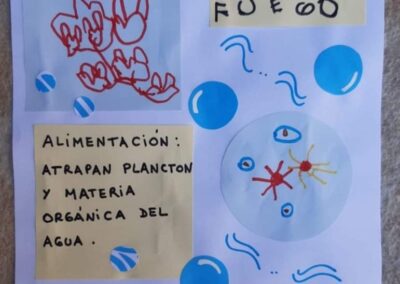 FUEGO
ALIMENTACIÓN:
ATRAPAN PLANCTON
Y MATERIA
ORGÁNICA DEL
AGUA.